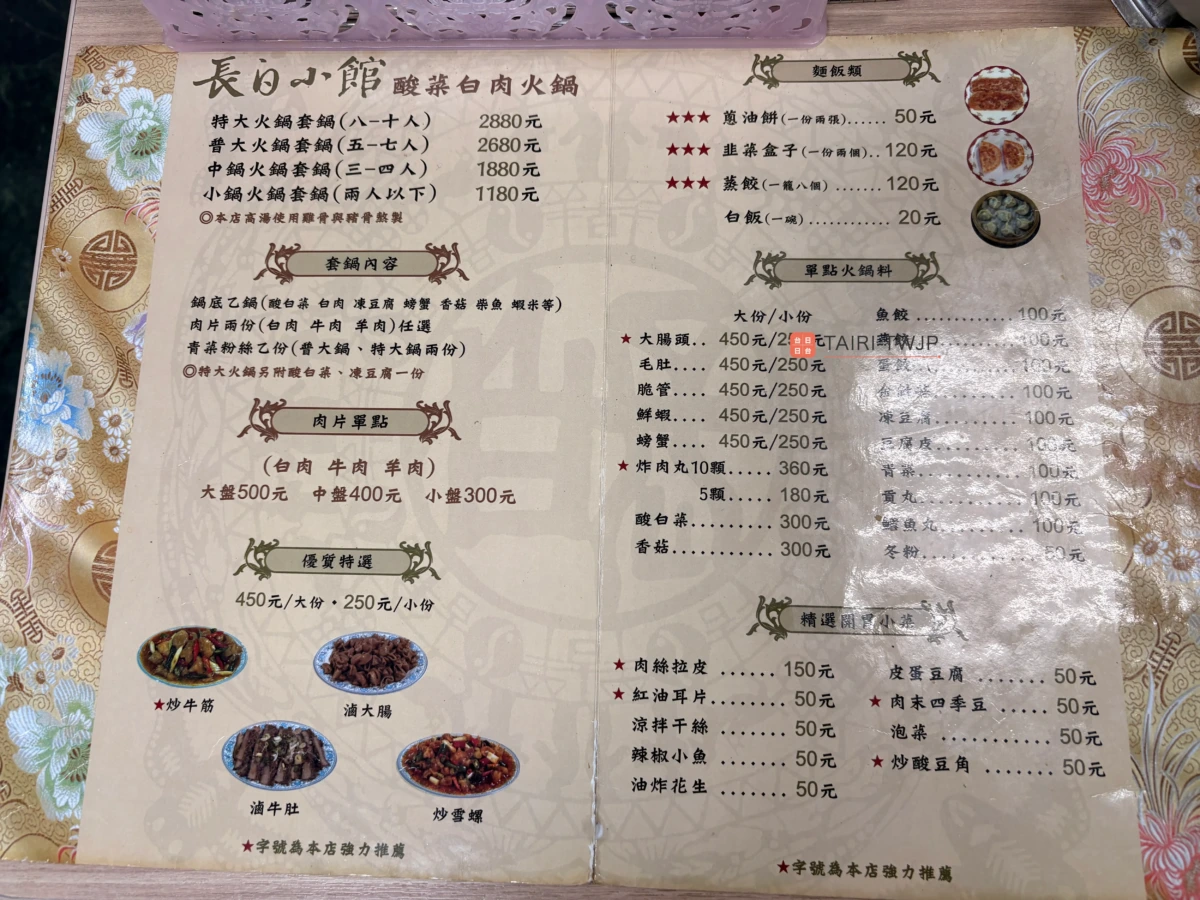 長白小館 酸菜白肉火鍋
特大火鍋套鍋(八-十人) 2880元
普大火鍋套鍋(五-七人) 2680元
中鍋火鍋套鍋(三-四人) 1880元
小鍋火鍋套鍋(兩人以下) 1180元
◎本店高湯使用雞骨與豬骨熬製
套鍋內容
鍋底乙鍋(酸白菜 白肉 凍豆腐 螃蟹 香菇 柴魚 蝦米等)
肉片兩份(白肉 牛肉 羊肉)任選
青菜粉絲乙份(普大鍋、特大鍋兩份)
◎特大火鍋另附酸白菜、凍豆腐一份
肉片單點
(白肉 牛肉 羊肉)
大盤500元 中盤400元 小盤300元
優質特選
450元/大份・250元/小份
★炒牛筋
滷大腸
滷牛肚
炒雪螺
★字號為本店強力推薦
麵飯類
★★★ 蔥油餅(一份兩張)...... 50元
★★★ 韭菜盒子(一份兩個).. 120元
★★★ 蒸餃(一籠八個) ....... 120元
白飯(一碗) ............ 20元
單點火鍋料
大份/小份
★大腸頭.. 450元/250元
毛肚.... 450元/250元
脆管.... 450元/250元
鮮蝦.... 450元/250元
螃蟹.... 450元/250元
★炸肉丸10顆..... 360元
5顆..... 180元
酸白菜......... 300元
香菇........... 300元
魚餃 ............ 100元
100元
蛋餃 100元
100元
凍豆腐 100元
豆腐皮 100元
青菜 100元
貢丸 100元
鱈魚丸 100元
冬粉 50元
TAIRI TWJP
精選開胃小菜
★肉絲拉皮 ...... 150元
★紅油耳片........ 50元
涼拌干絲 ....... 50元
辣椒小魚 ....... 50元
油炸花生 ....... 50元
皮蛋豆腐 ........ 50元
★肉末四季豆 ..... 50元
泡菜 ........... 50元
★炒酸豆角 ....... 50元
★字號為本店強力推薦